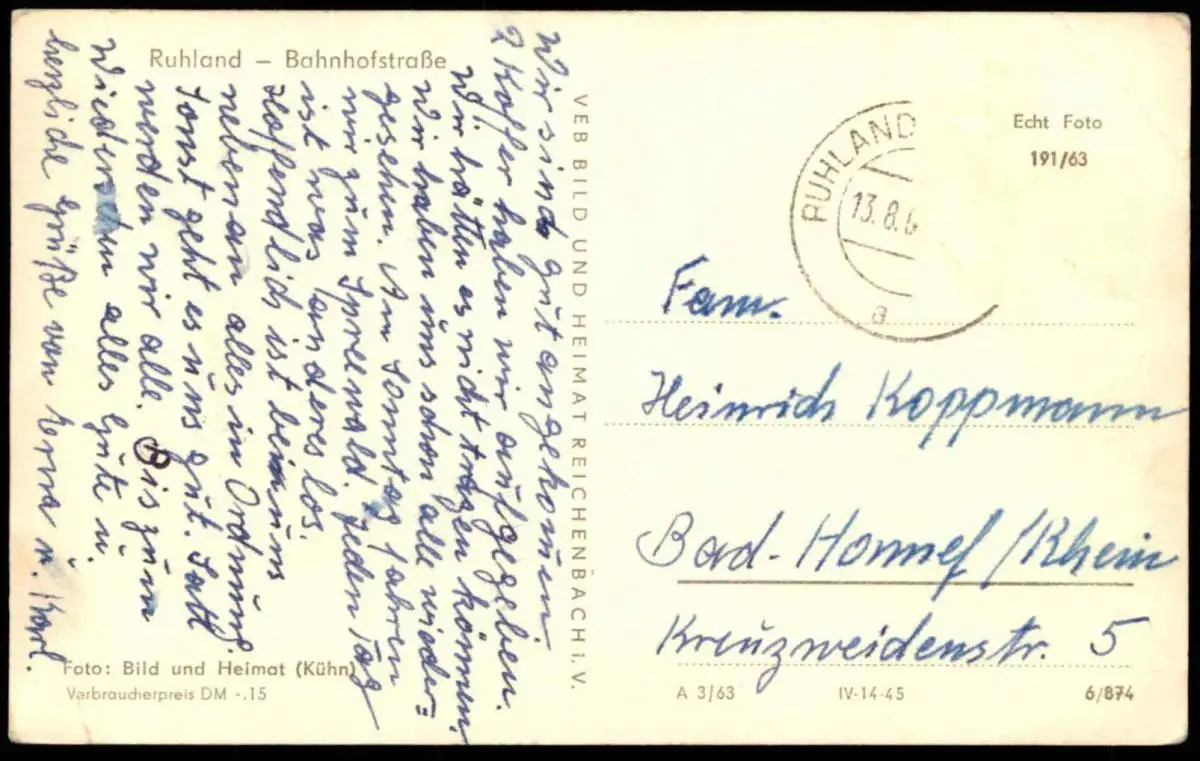 Ruhland – Bahnhofstraße
Wir sind gut angekomm
2 Koffer haben wir aufgegeben.
Wir hätten es nicht tragen können.
Wir haben uns schon alle wieder=
gesehen. Am Sonntag fahren
wir zum Spreewald. Jeden Tag
ist was anderes los.
Hoffendlich ist bei uns
nebenan alles in Ordnung.
Sonst geht es uns gut. Satt
werden wir alle. Bis zum
Wiedersehen alles Gute u.
herzliche Grüße von Erna u. Karl.
Foto: Bild und Heimat (Kühn)
Verbraucherpreis DM -.15
VEB BILD UND HEIMAT REICHENBACH i. V.
RUHLAND
13.8.6
a
Echt Foto
191/63
Fam.
Heinrich Koppmann
Bad-Honnef/Rhein
Kreuzweidenstr. 5
A 3/63 IV-14-45 6/874